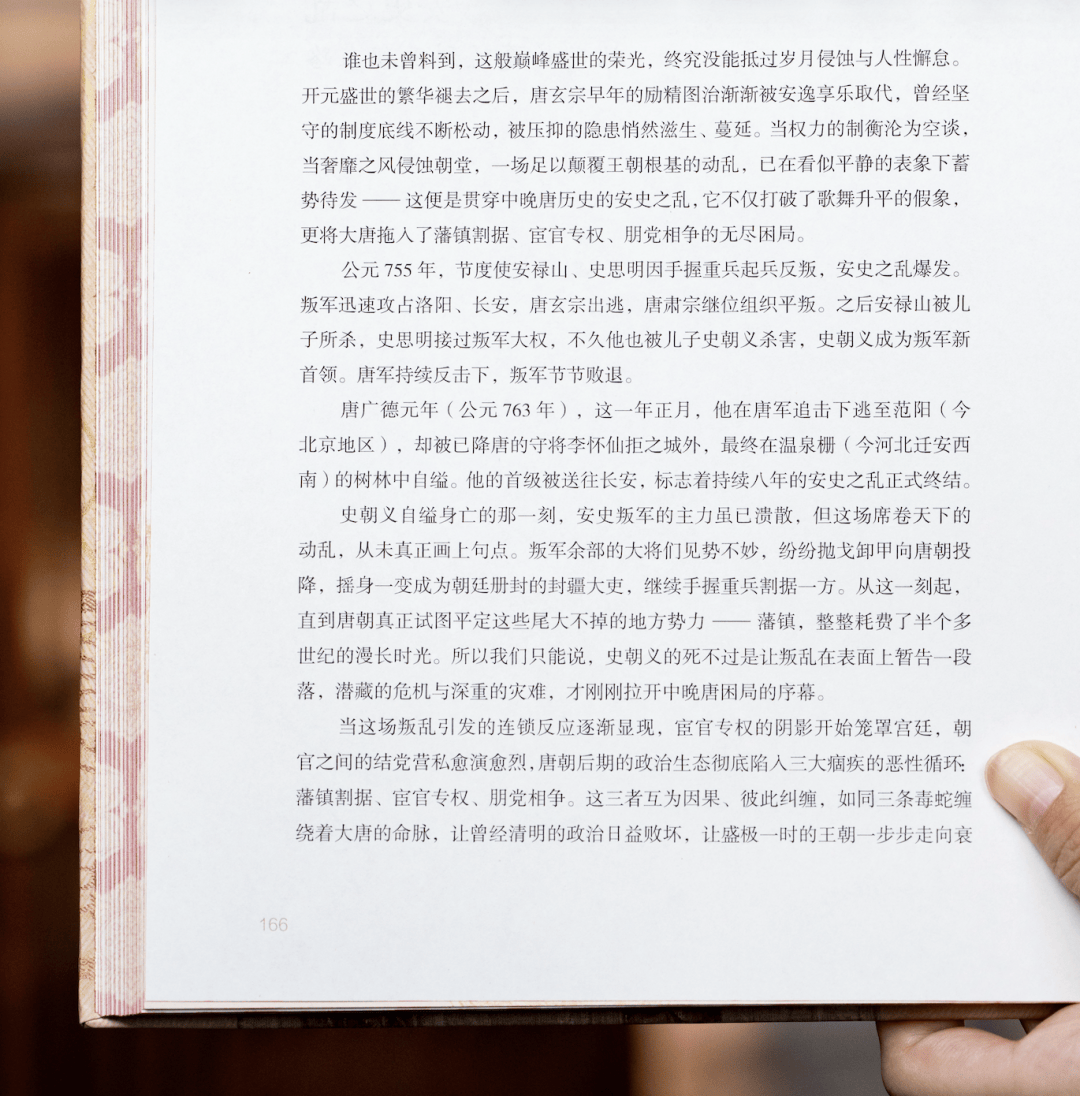 谁也未曾料到，这般巅峰盛世的荣光，终究没能抵过岁月侵蚀与人性懈怠。
开元盛世的繁华褪去之后，唐玄宗早年的励精图治渐渐被安逸享乐取代，曾经坚
守的制度底线不断松动，被压抑的隐患悄然滋生、蔓延。当权力的制衡沦为空谈，
当奢靡之风侵蚀朝堂，一场足以颠覆王朝根基的动乱，已在看似平静的表象下蓄
势待发——这便是贯穿中晚唐历史的安史之乱，它不仅打破了歌舞升平的假象，
更将大唐拖入了藩镇割据、宦官专权、朋党相争的无尽困局。
公元 755 年，节度使安禄山、史思明因手握重兵起兵反叛，安史之乱爆发。
叛军迅速攻占洛阳、长安，唐玄宗出逃，唐肃宗继位组织平叛。之后安禄山被儿
子所杀，史思明接过叛军大权，不久他也被儿子史朝义杀害，史朝义成为叛军新
首领。唐军持续反击下，叛军节节败退。
唐广德元年（公元 763 年），这一年正月，他在唐军追击下逃至范阳（今
北京地区），却被已降唐的守将李怀仙拒之城外，最终在温泉栅（今河北迁安西
南）的树林中自缢。他的首级被送往长安，标志着持续八年的安史之乱正式终结。
史朝义自缢身亡的那一刻，安史叛军的主力虽已溃散，但这场席卷天下的
动乱，从未真正画上句点。叛军余部的大将们见势不妙，纷纷抛戈卸甲向唐朝投
降，摇身一变成为朝廷册封的封疆大吏，继续手握重兵割据一方。从这一刻起，
直到唐朝真正试图平定这些尾大不掉的地方势力——藩镇，整整耗费了半个多
世纪的漫长时光。所以我们只能说，史朝义的死不过是让叛乱在表面上暂告一段
落，潜藏的危机与深重的灾难，才刚刚拉开中晚唐困局的序幕。
当这场叛乱引发的连锁反应逐渐显现，宦官专权的阴影开始笼罩宫廷，朝
官之间的结党营私愈演愈烈，唐朝后期的政治生态彻底陷入三大痼疾的恶性循环：
藩镇割据、宦官专权、朋党相争。这三者互为因果、彼此纠缠，如同三条毒蛇缠
绕着大唐的命脉，让曾经清明的政治日益败坏，让盛极一时的王朝一步步走向衰
166